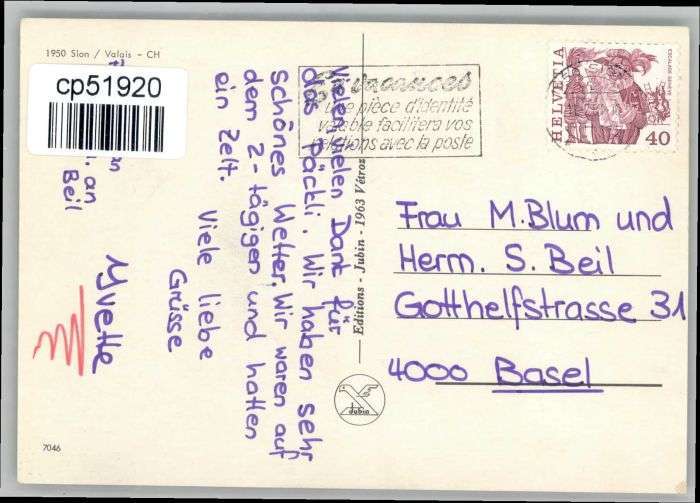 1950 Sion / Valais - CH
cp51920
Vielen vielen Dank für
das Päckli. Wir haben sehr
schönes Wetter. Wir waren auf
dem 2-tägigen und hatten
ein Zelt.
Viele liebe
Grüsse
Yvette
an
Beil
En vacances
une pièce d'identité
valable facilitera vos
relations avec la poste
HELVETIA
ESCALADE GENÈVE
40
Editions - Jubin - 1963 Vétroz
Jubin
Frau M. Blum und
Herm. S. Beil
Gotthelfstrasse 31
4000 Basel
7046